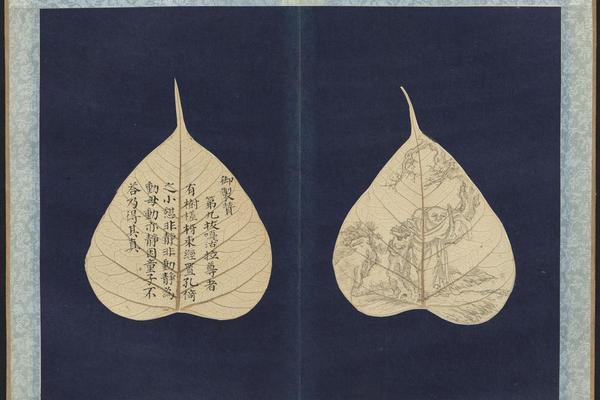 御製贊
第九拔嘎沽拉尊者
有樹槎枒束經置孔倚
之小憩非靜非動靜為
動母動亦靜因童子不
荅乃得其真